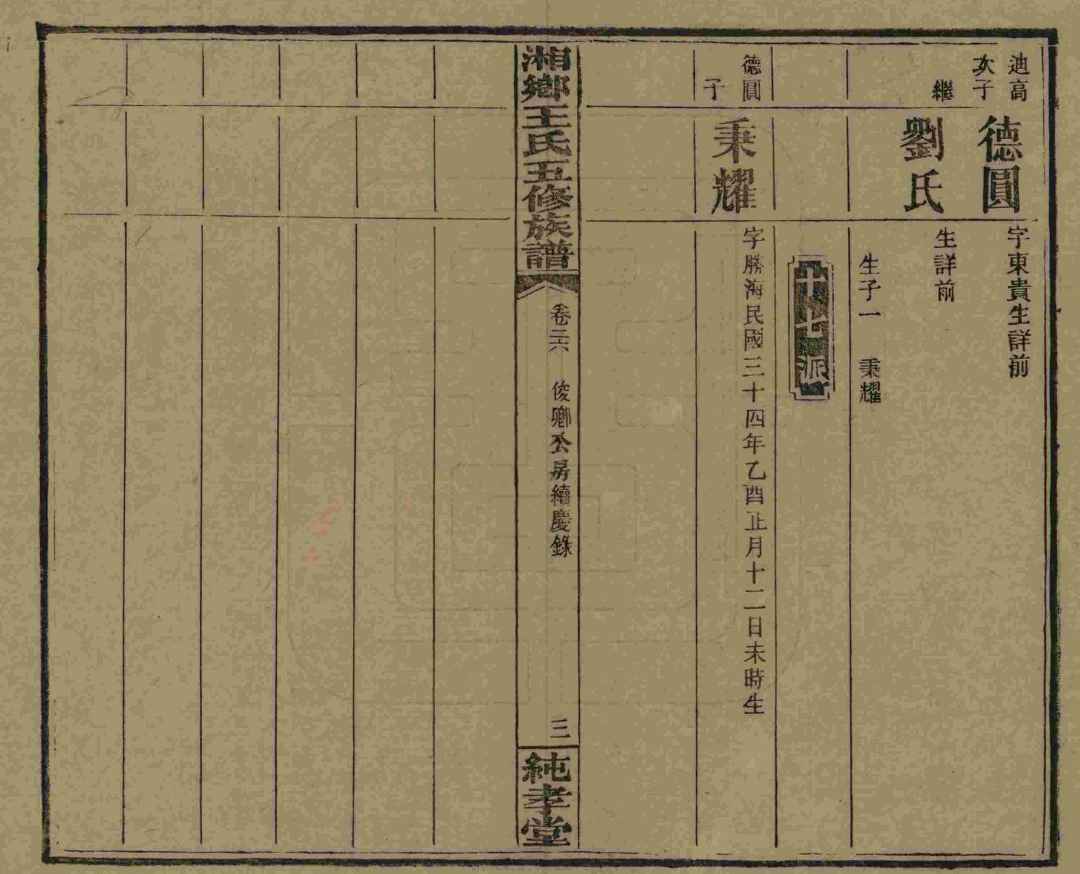 迪高
次子
德圓
字東貴生詳前
繼
劉氏
生詳前
生子一 秉耀
派
德圓
子
秉耀
字勝海民國三十四年乙酉正月十二日未時生
湘鄉王氏五修族譜
卷三六 俊鄉公房續慶錄
三
純孝堂